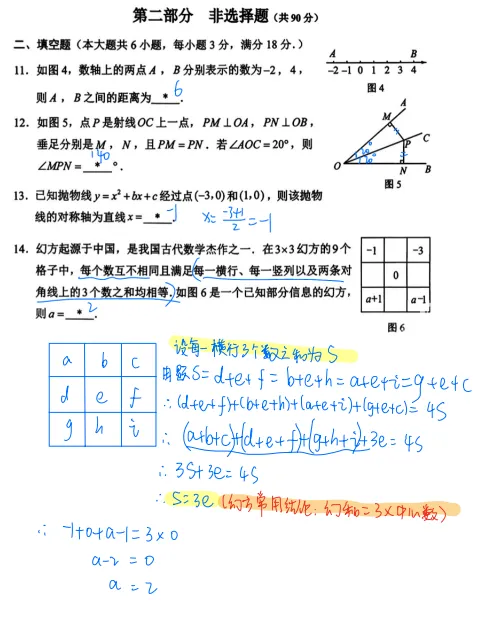 第二部分 非选择题(共90分)
二、填空题(本大题共6小题,每小题3分,满分18分.)
11. 如图4,数轴上的两点A,B分别表示的数为-2,4,
则A,B之间的距离为 * . 6
A B
-2 -1 0 1 2 3 4
图4
12. 如图5,点P是射线OC上一点,PM⊥OA,PN⊥OB,
垂足分别是M,N,且PM=PN.若∠AOC=20°,则
∠MPN= * °. 140
A
M
C
P
O N B
图5
13. 已知抛物线y=x²+bx+c经过点(-3,0)和(1,0),则该抛物
线的对称轴为直线x= * . -1 x=(-3+1)/2=-1
14. 幻方起源于中国,是我国古代数学杰作之一.在3×3幻方的9个
格子中,每个数互不相同且满足(每一横行、每一竖列以及两条对
角线上的3个数之和均相等.)如图6是一个已知部分信息的幻方,
则a= * . 2
-1 -3
0
a+1 a-1
图6
a b c
d e f
g h i
设每一横行3个数之和为S
由题S=d+e+f=b+e+h=a+e+i=g+e+c
∴(d+e+f)+(b+e+h)+(a+e+i)+(g+e+c)=4S
∴(a+b+c)+(d+e+f)+(g+h+i)+3e=4S
∴3S+3e=4S
∴S=3e(幻方常用结论:幻和=3×中心数)
∴ -1+0+a-1=3×0
a-2=0
a=2